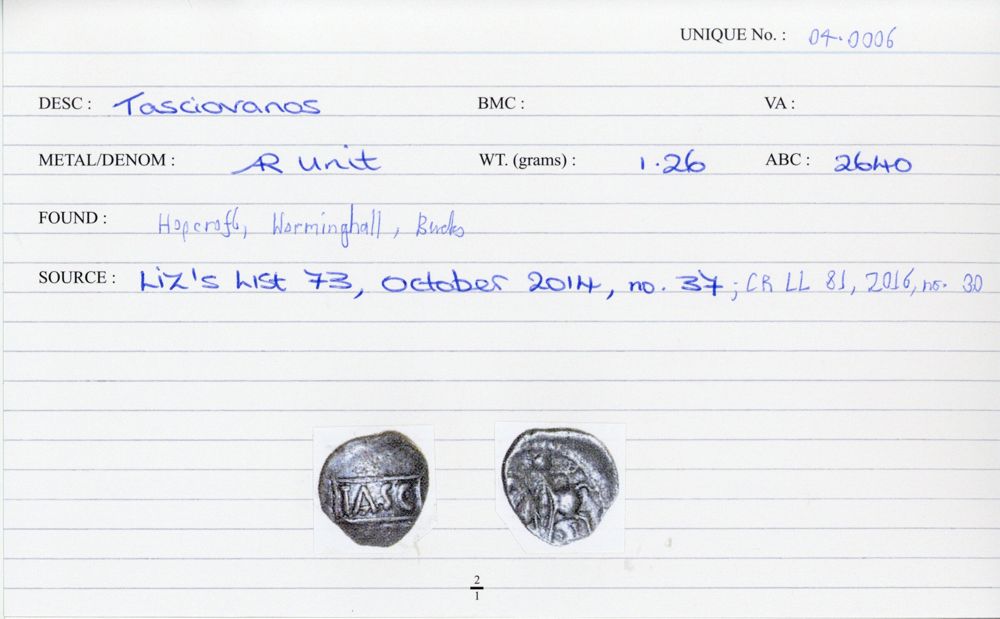 UNIQUE No. : 04.0006
DESC : Tasciovanos BMC : VA :
METAL/DENOM : AR Unit WT. (grams) : 1.26 ABC : 2640
FOUND : Hopcroft, Worminghall, Bucks
SOURCE : Liz's List 73, October 2014, no. 37; CR LL 81, 2016, no. 30
TASC
2
1